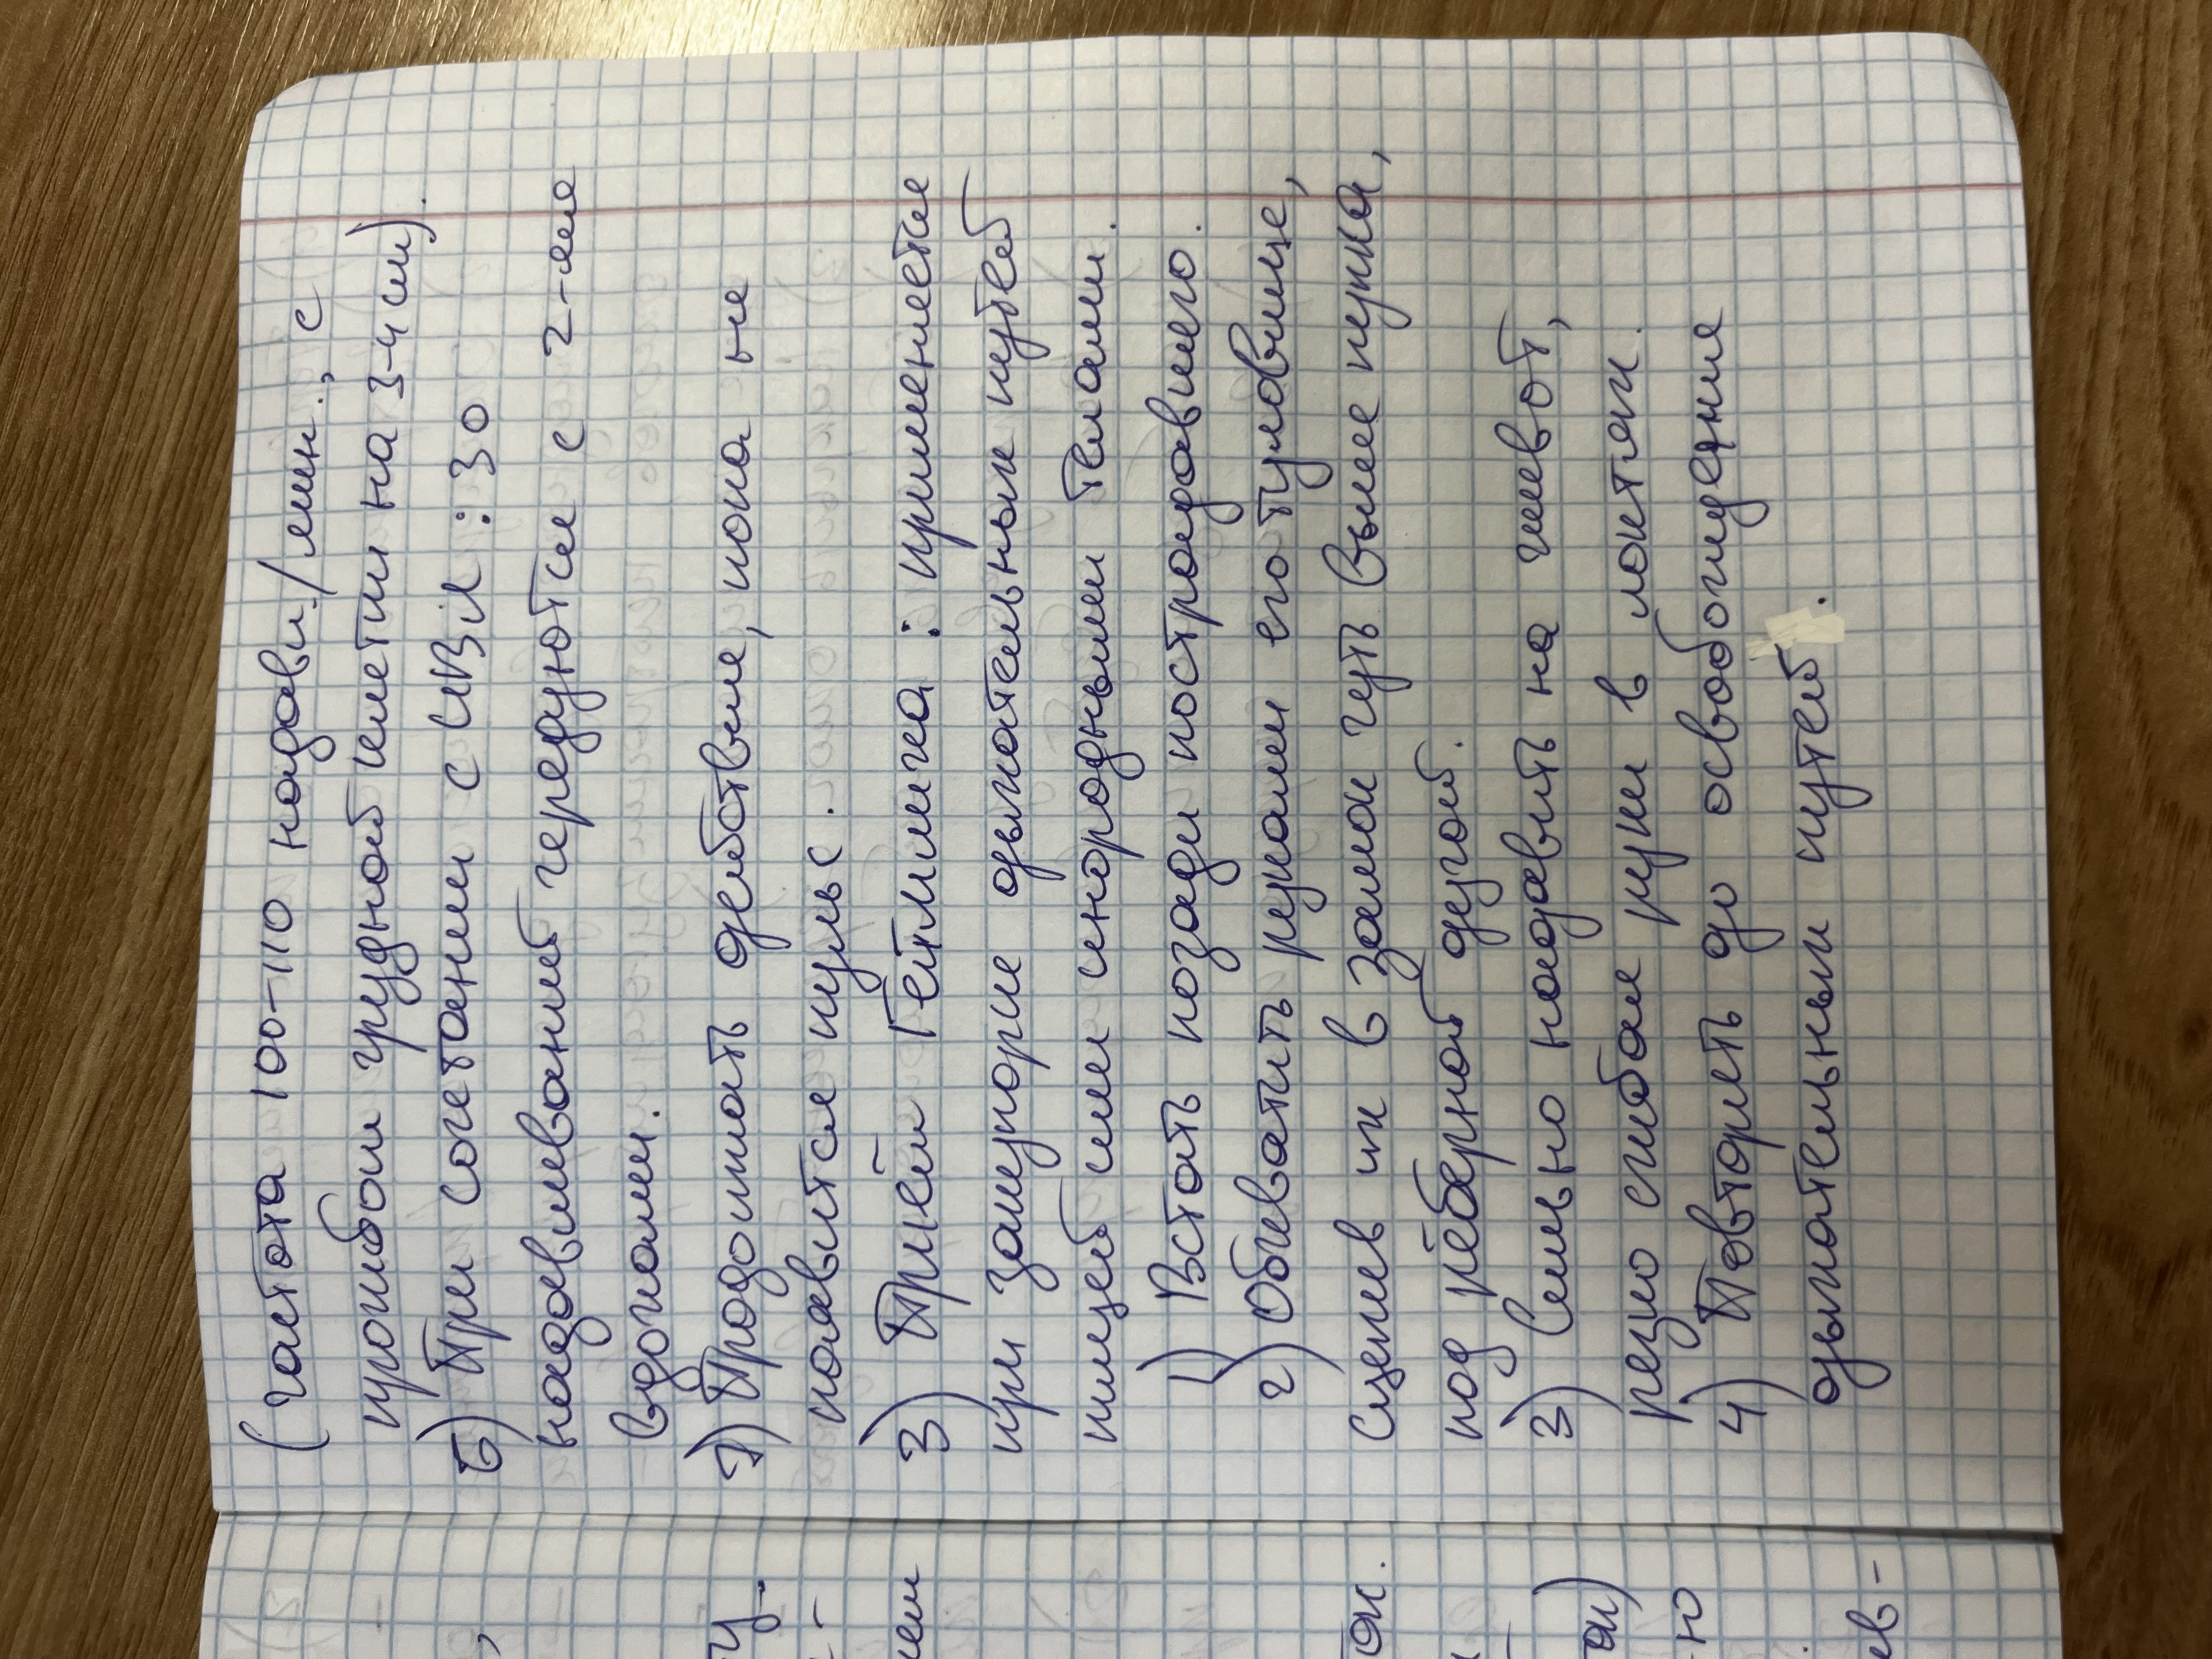 (частота 100-110 надавл./мин., с
прогибом грудной клетки на 3-4 см).
6) При сочетании с ИВЛ : 30
надавливаний чередуются с 2-мя
вдохами.
7) Продолжать действия, пока не
появится пульс.
3) Приём Геймлиха : применяется
при закупорке дыхательных путей
пищей или инородными телами.
1) Встать позади пострадавшего.
2) Обхватить руками его туловище,
сцепив их в замок чуть выше пупка,
под рёберной дугой.
3) Сильно надавить на живот,
резко сгибая руки в локтях.
4) Повторять до освобождения
дыхательных путей.